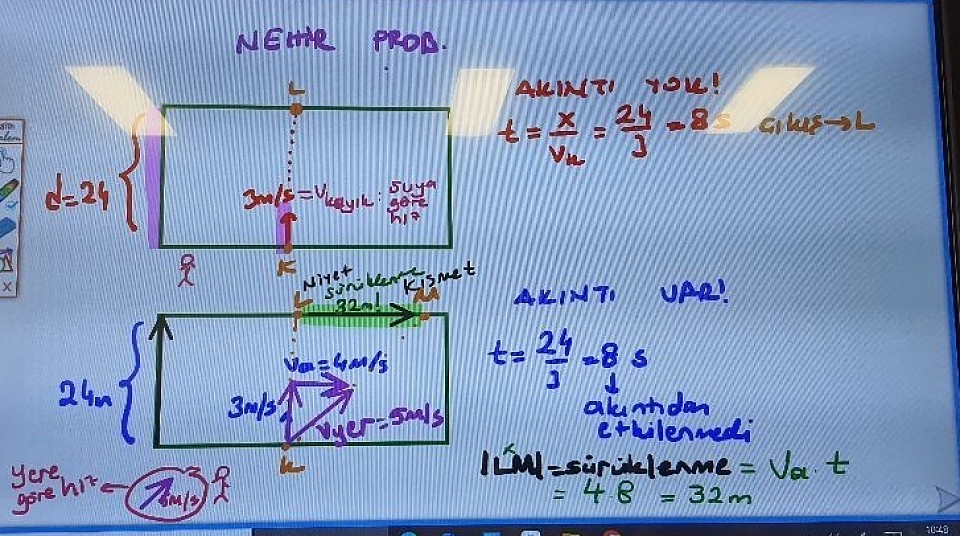 NEHİR PROB.
L
d=24
3m/s = Vkayık : suya
göre
hız
K
AKINTI YOK!
t = x/Vk = 24/3 = 8 s Çıkış→L
Niyet
sürüklenme
Kısmet
32m!
L
M
24m
Va=4m/s
3m/s
Vyer=5m/s
K
yere
göre hız
5m/s
AKINTI VAR!
t = 24/3 = 8 s
akıntıdan
etkilenmedi
|LM|=sürüklenme = Va.t
= 4.8 = 32m
10:48